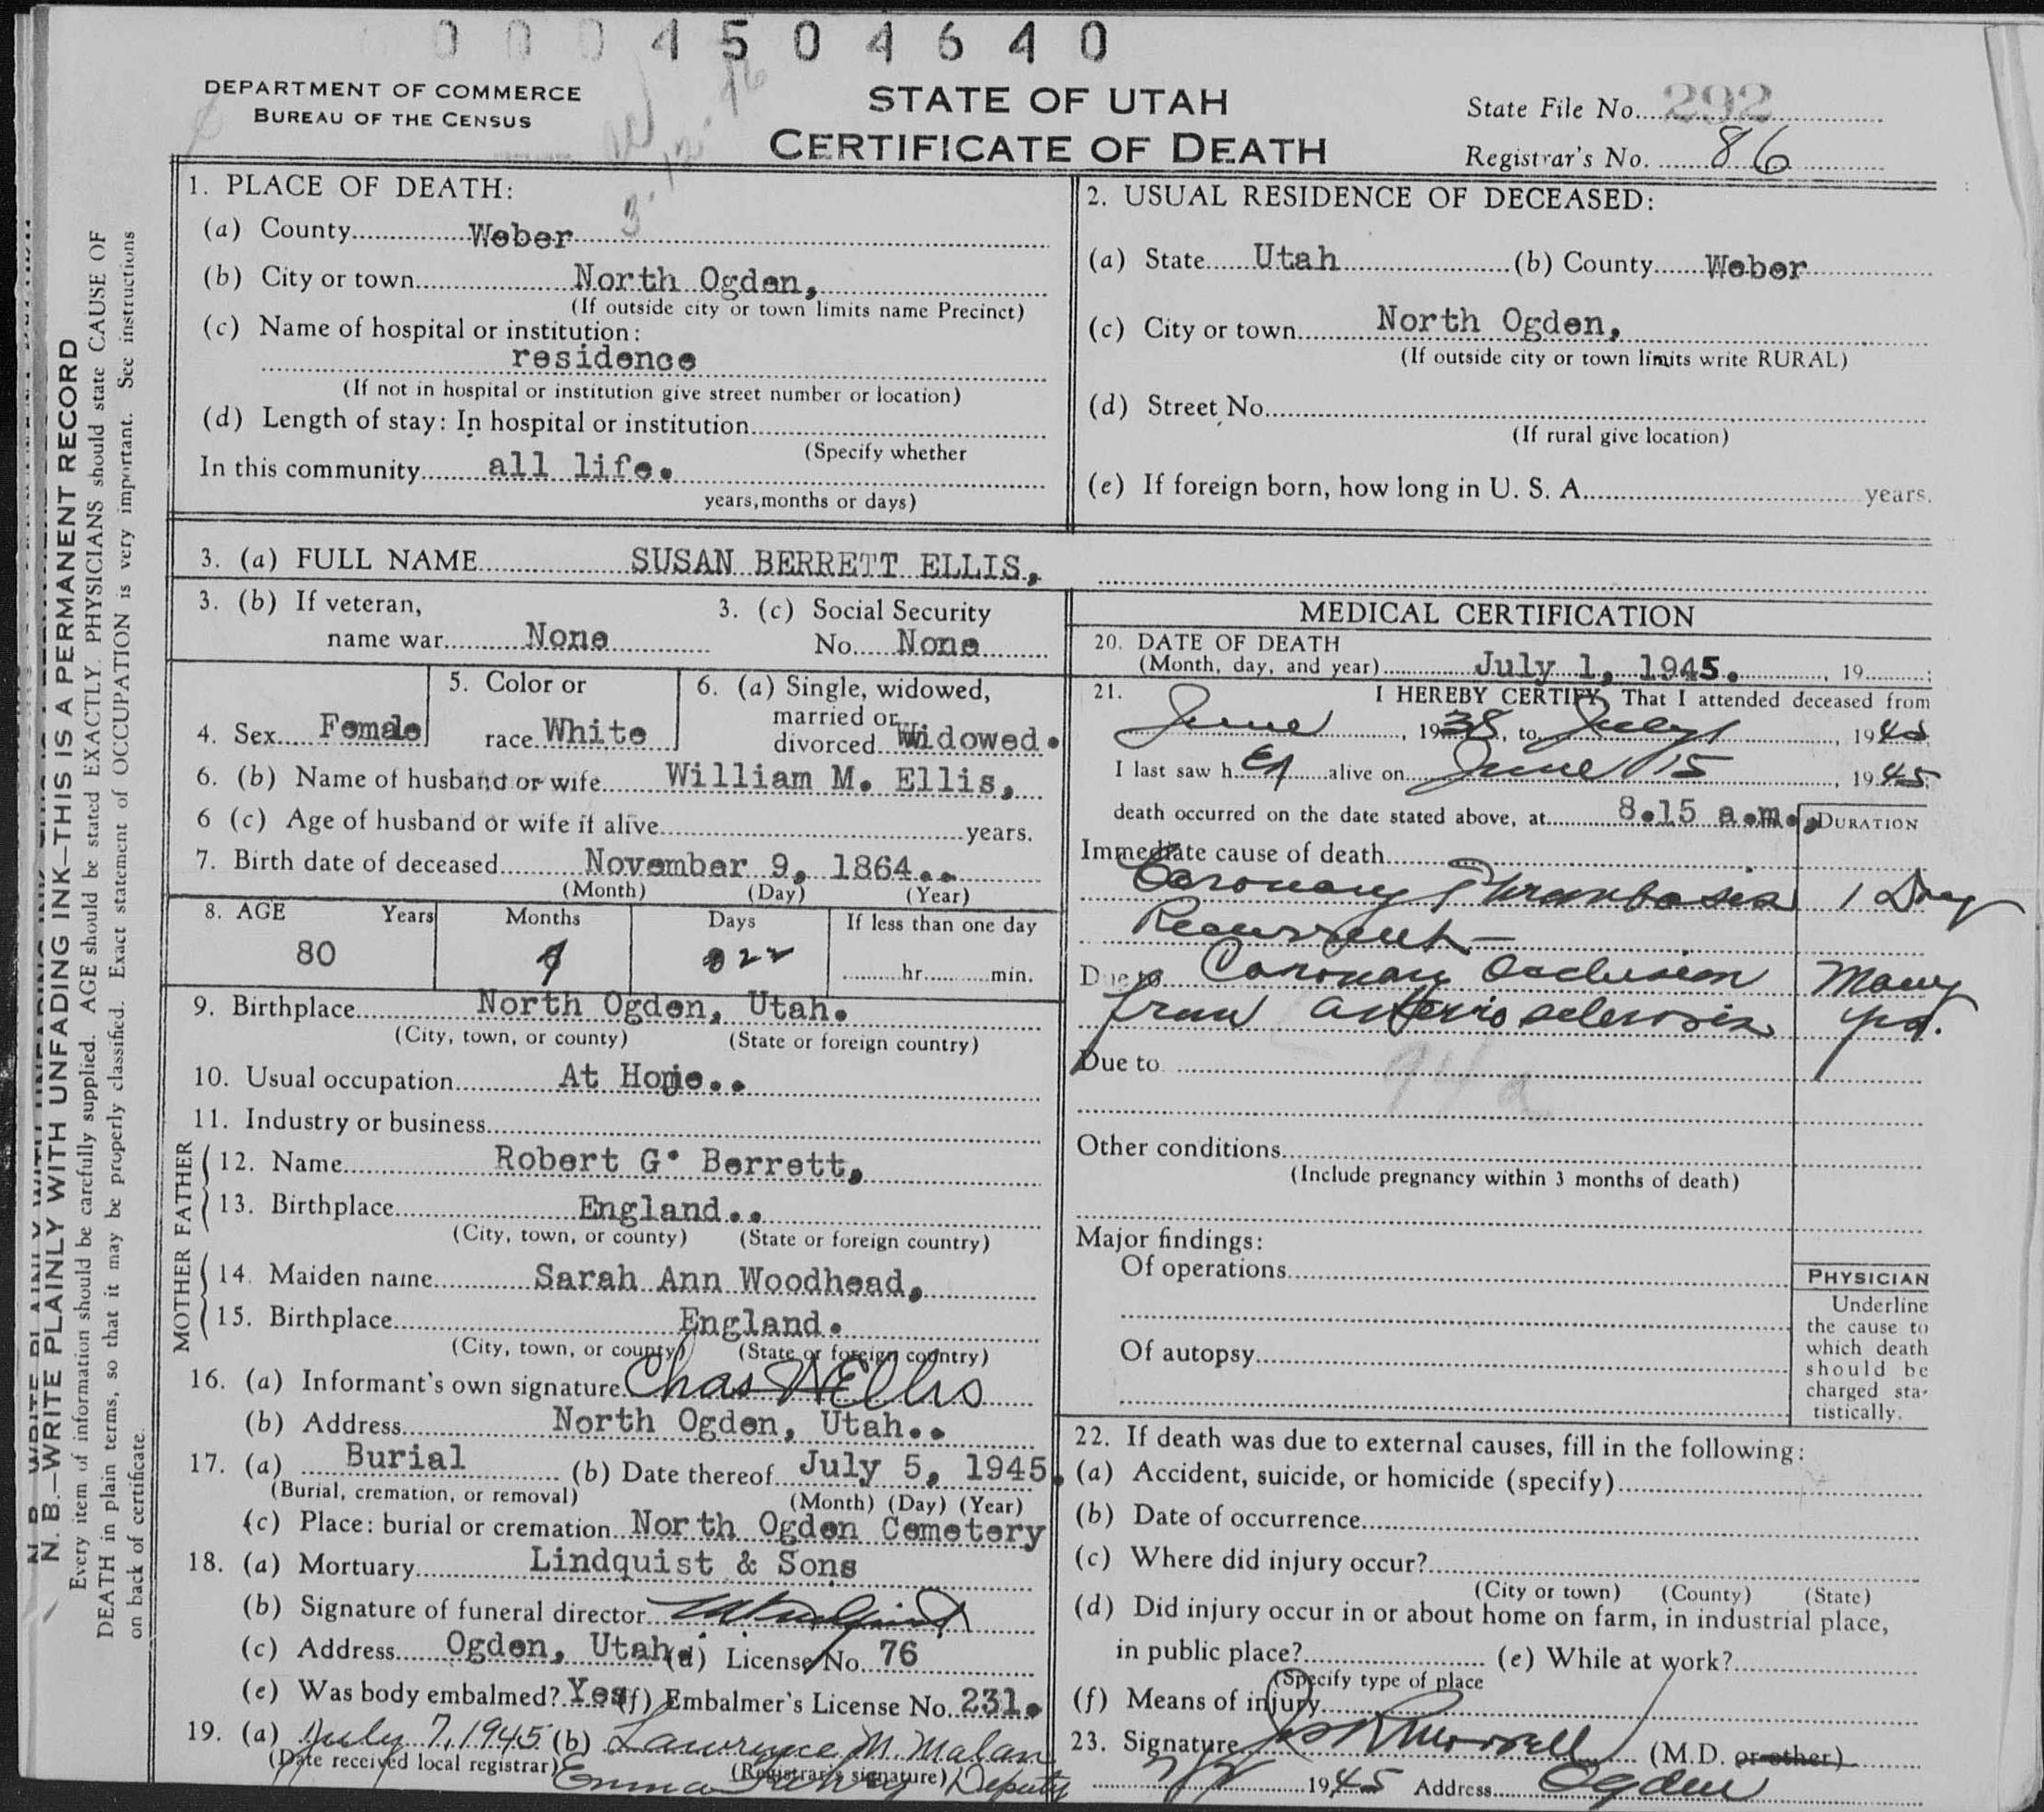 0004504640
DEPARTMENT OF COMMERCE
BUREAU OF THE CENSUS
STATE OF UTAH
CERTIFICATE OF DEATH
State File No. 292
Registrar's No. 86
1. PLACE OF DEATH:
(a) County Weber
(b) City or town North Ogden,
(If outside city or town limits name Precinct)
(c) Name of hospital or institution:
residence
(If not in hospital or institution give street number or location)
(d) Length of stay: In hospital or institution
(Specify whether
In this community all life.
years, months or days)
2. USUAL RESIDENCE OF DECEASED:
(a) State Utah (b) County Weber
(c) City or town North Ogden,
(If outside city or town limits write RURAL)
(d) Street No.
(If rural give location)
(e) If foreign born, how long in U. S. A. years.
3. (a) FULL NAME SUSAN BERRETT ELLIS,
3. (b) If veteran,
name war None
3. (c) Social Security
No. None
4. Sex Female
5. Color or
race White
6. (a) Single, widowed,
married or
divorced Widowed.
6. (b) Name of husband or wife William M. Ellis,
6 (c) Age of husband or wife if alive years.
7. Birth date of deceased November 9, 1864..
(Month) (Day) (Year)
8. AGE Years Months Days If less than one day
80 22 hr. min.
9. Birthplace North Ogden, Utah.
(City, town, or county) (State or foreign country)
10. Usual occupation At Home..
11. Industry or business
FATHER
12. Name Robert G. Berrett,
13. Birthplace England..
(City, town, or county) (State or foreign country)
MOTHER
14. Maiden name Sarah Ann Woodhead,
15. Birthplace England.
(City, town, or county) (State or foreign country)
16. (a) Informant's own signature Chas W Ellis
(b) Address North Ogden, Utah..
17. (a) Burial (b) Date thereof July 5, 1945.
(Burial, cremation, or removal) (Month) (Day) (Year)
(c) Place: burial or cremation North Ogden Cemetery
18. (a) Mortuary Lindquist & Sons
(b) Signature of funeral director
(c) Address Ogden, Utah. (d) License No. 76
(e) Was body embalmed? Yes (f) Embalmer's License No. 231.
19. (a) July 7, 1945 (b) Lawrence M. Malan
(Date received local registrar) (Registrar's signature)
Emma Deputy
MEDICAL CERTIFICATION
20. DATE OF DEATH
(Month, day, and year) July 1, 1945. , 19 ;
21. I HEREBY CERTIFY, That I attended deceased from
June , 1938, to July 1 , 1945
I last saw her alive on June 15 , 1945;
death occurred on the date stated above, at 8.15 a.m.,
DURATION
Immediate cause of death
Coronary Thrombosis 1 Day
Recurrent
Due to Coronary Occlusion Many
from arteriosclerosis yrs.
Due to
94a
Other conditions
(Include pregnancy within 3 months of death)
Major findings:
Of operations
Of autopsy
PHYSICIAN
Underline
the cause to
which death
should be
charged sta-
tistically.
22. If death was due to external causes, fill in the following:
(a) Accident, suicide, or homicide (specify)
(b) Date of occurrence
(c) Where did injury occur?
(City or town) (County) (State)
(d) Did injury occur in or about home on farm, in industrial place,
in public place? (e) While at work?
(Specify type of place
(f) Means of injury
23. Signature Morrell (M.D. or other)
1945 Address Ogden
N. B.—WRITE PLAINLY WITH UNFADING INK—THIS IS A PERMANENT RECORD
Every item of information should be carefully supplied. AGE should be stated EXACTLY. PHYSICIANS should state CAUSE OF
DEATH in plain terms, so that it may be properly classified. Exact statement of OCCUPATION is very important. See instructions
on back of certificate.